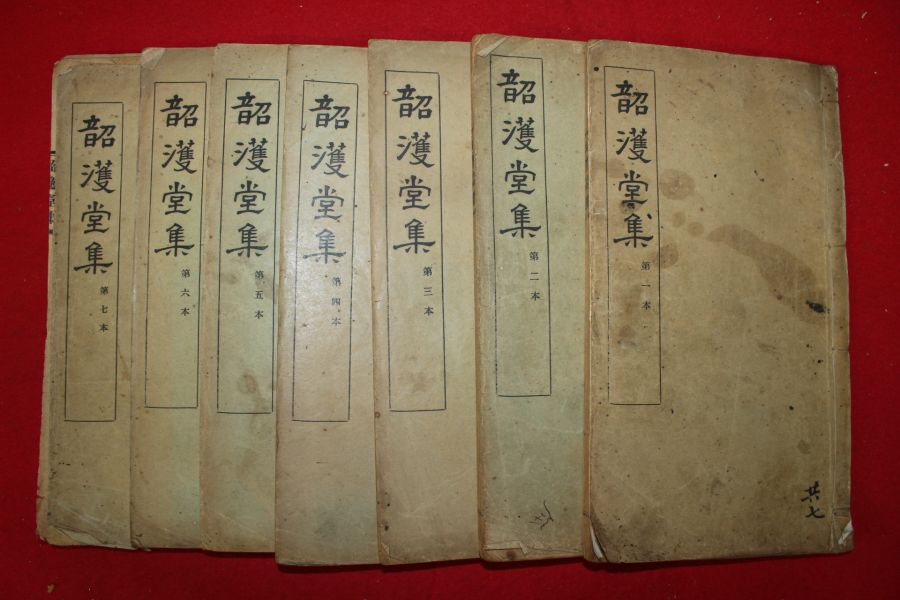 韶濩堂集
第一本
共七
韶濩堂集
第二本
韶濩堂集
第三本
韶濩堂集
第四本
韶濩堂集
第五本
韶濩堂集
第六本
韶濩堂集
第七本